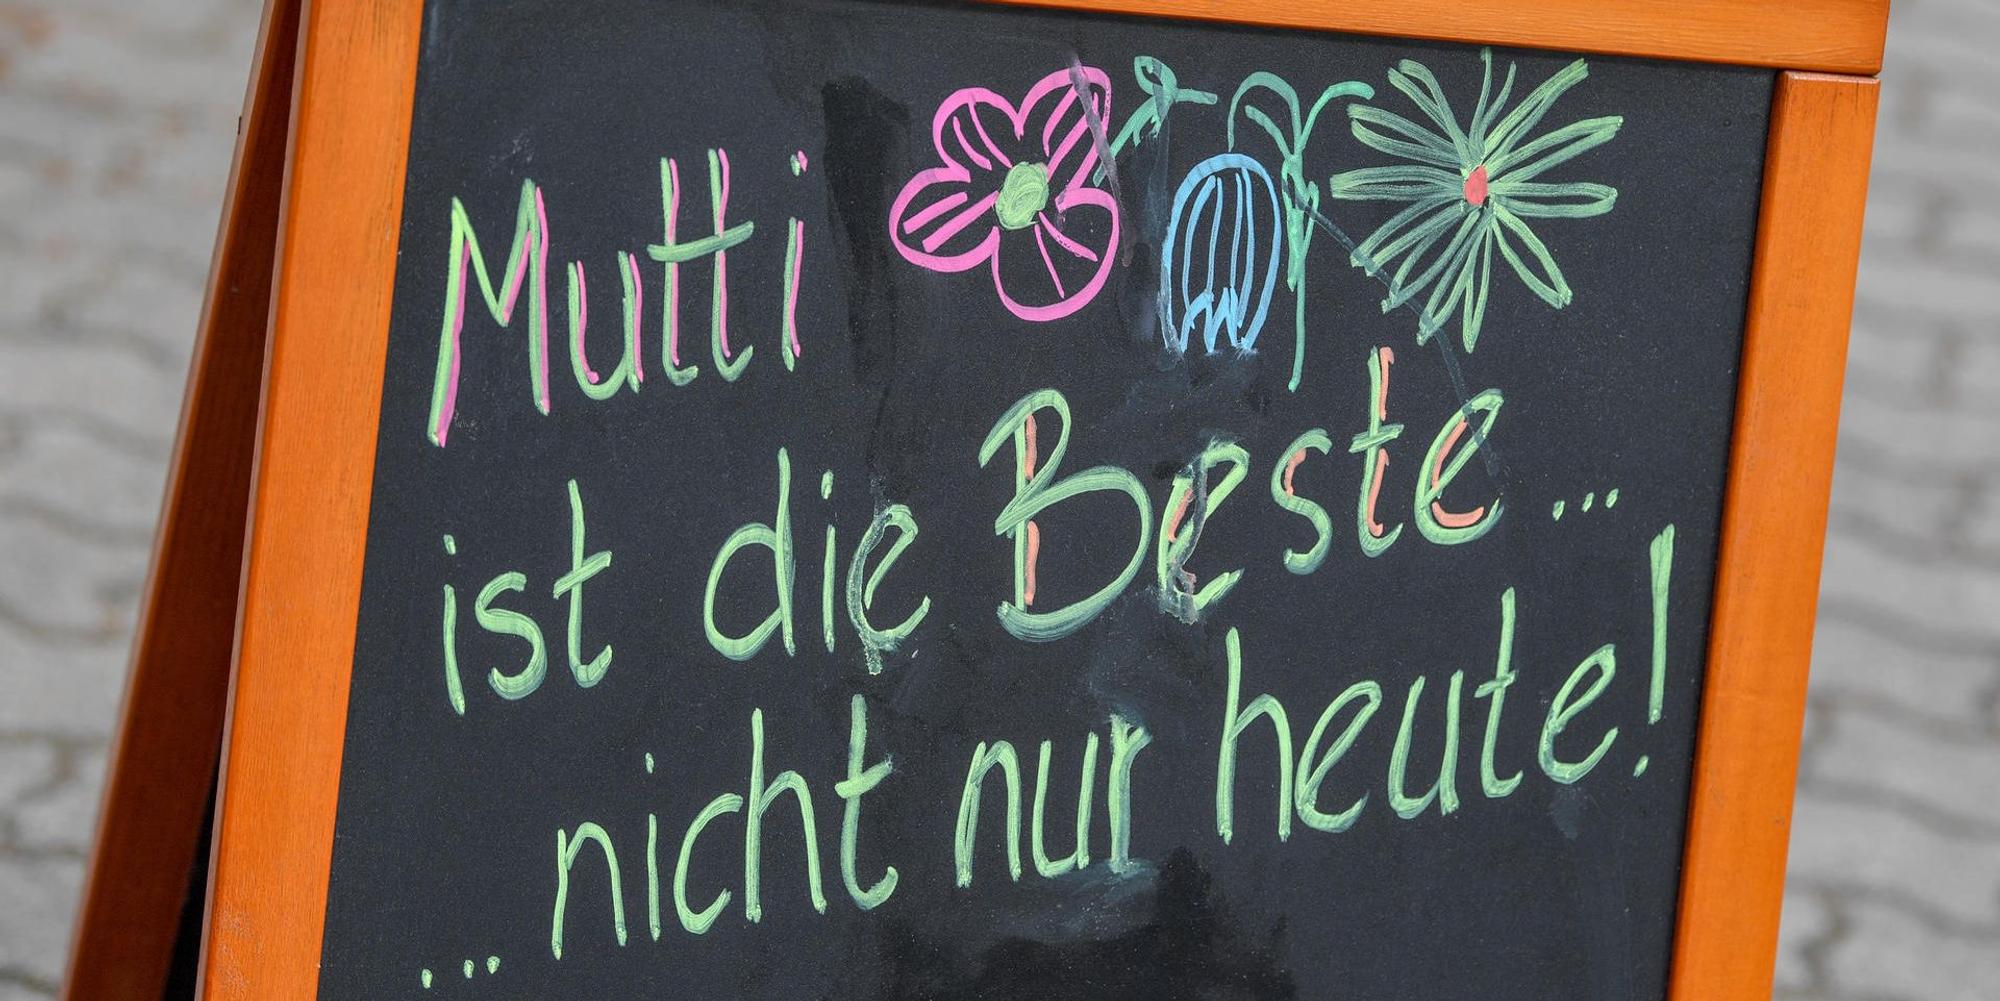 Mutti
ist die Beste...
...nicht nur heute!